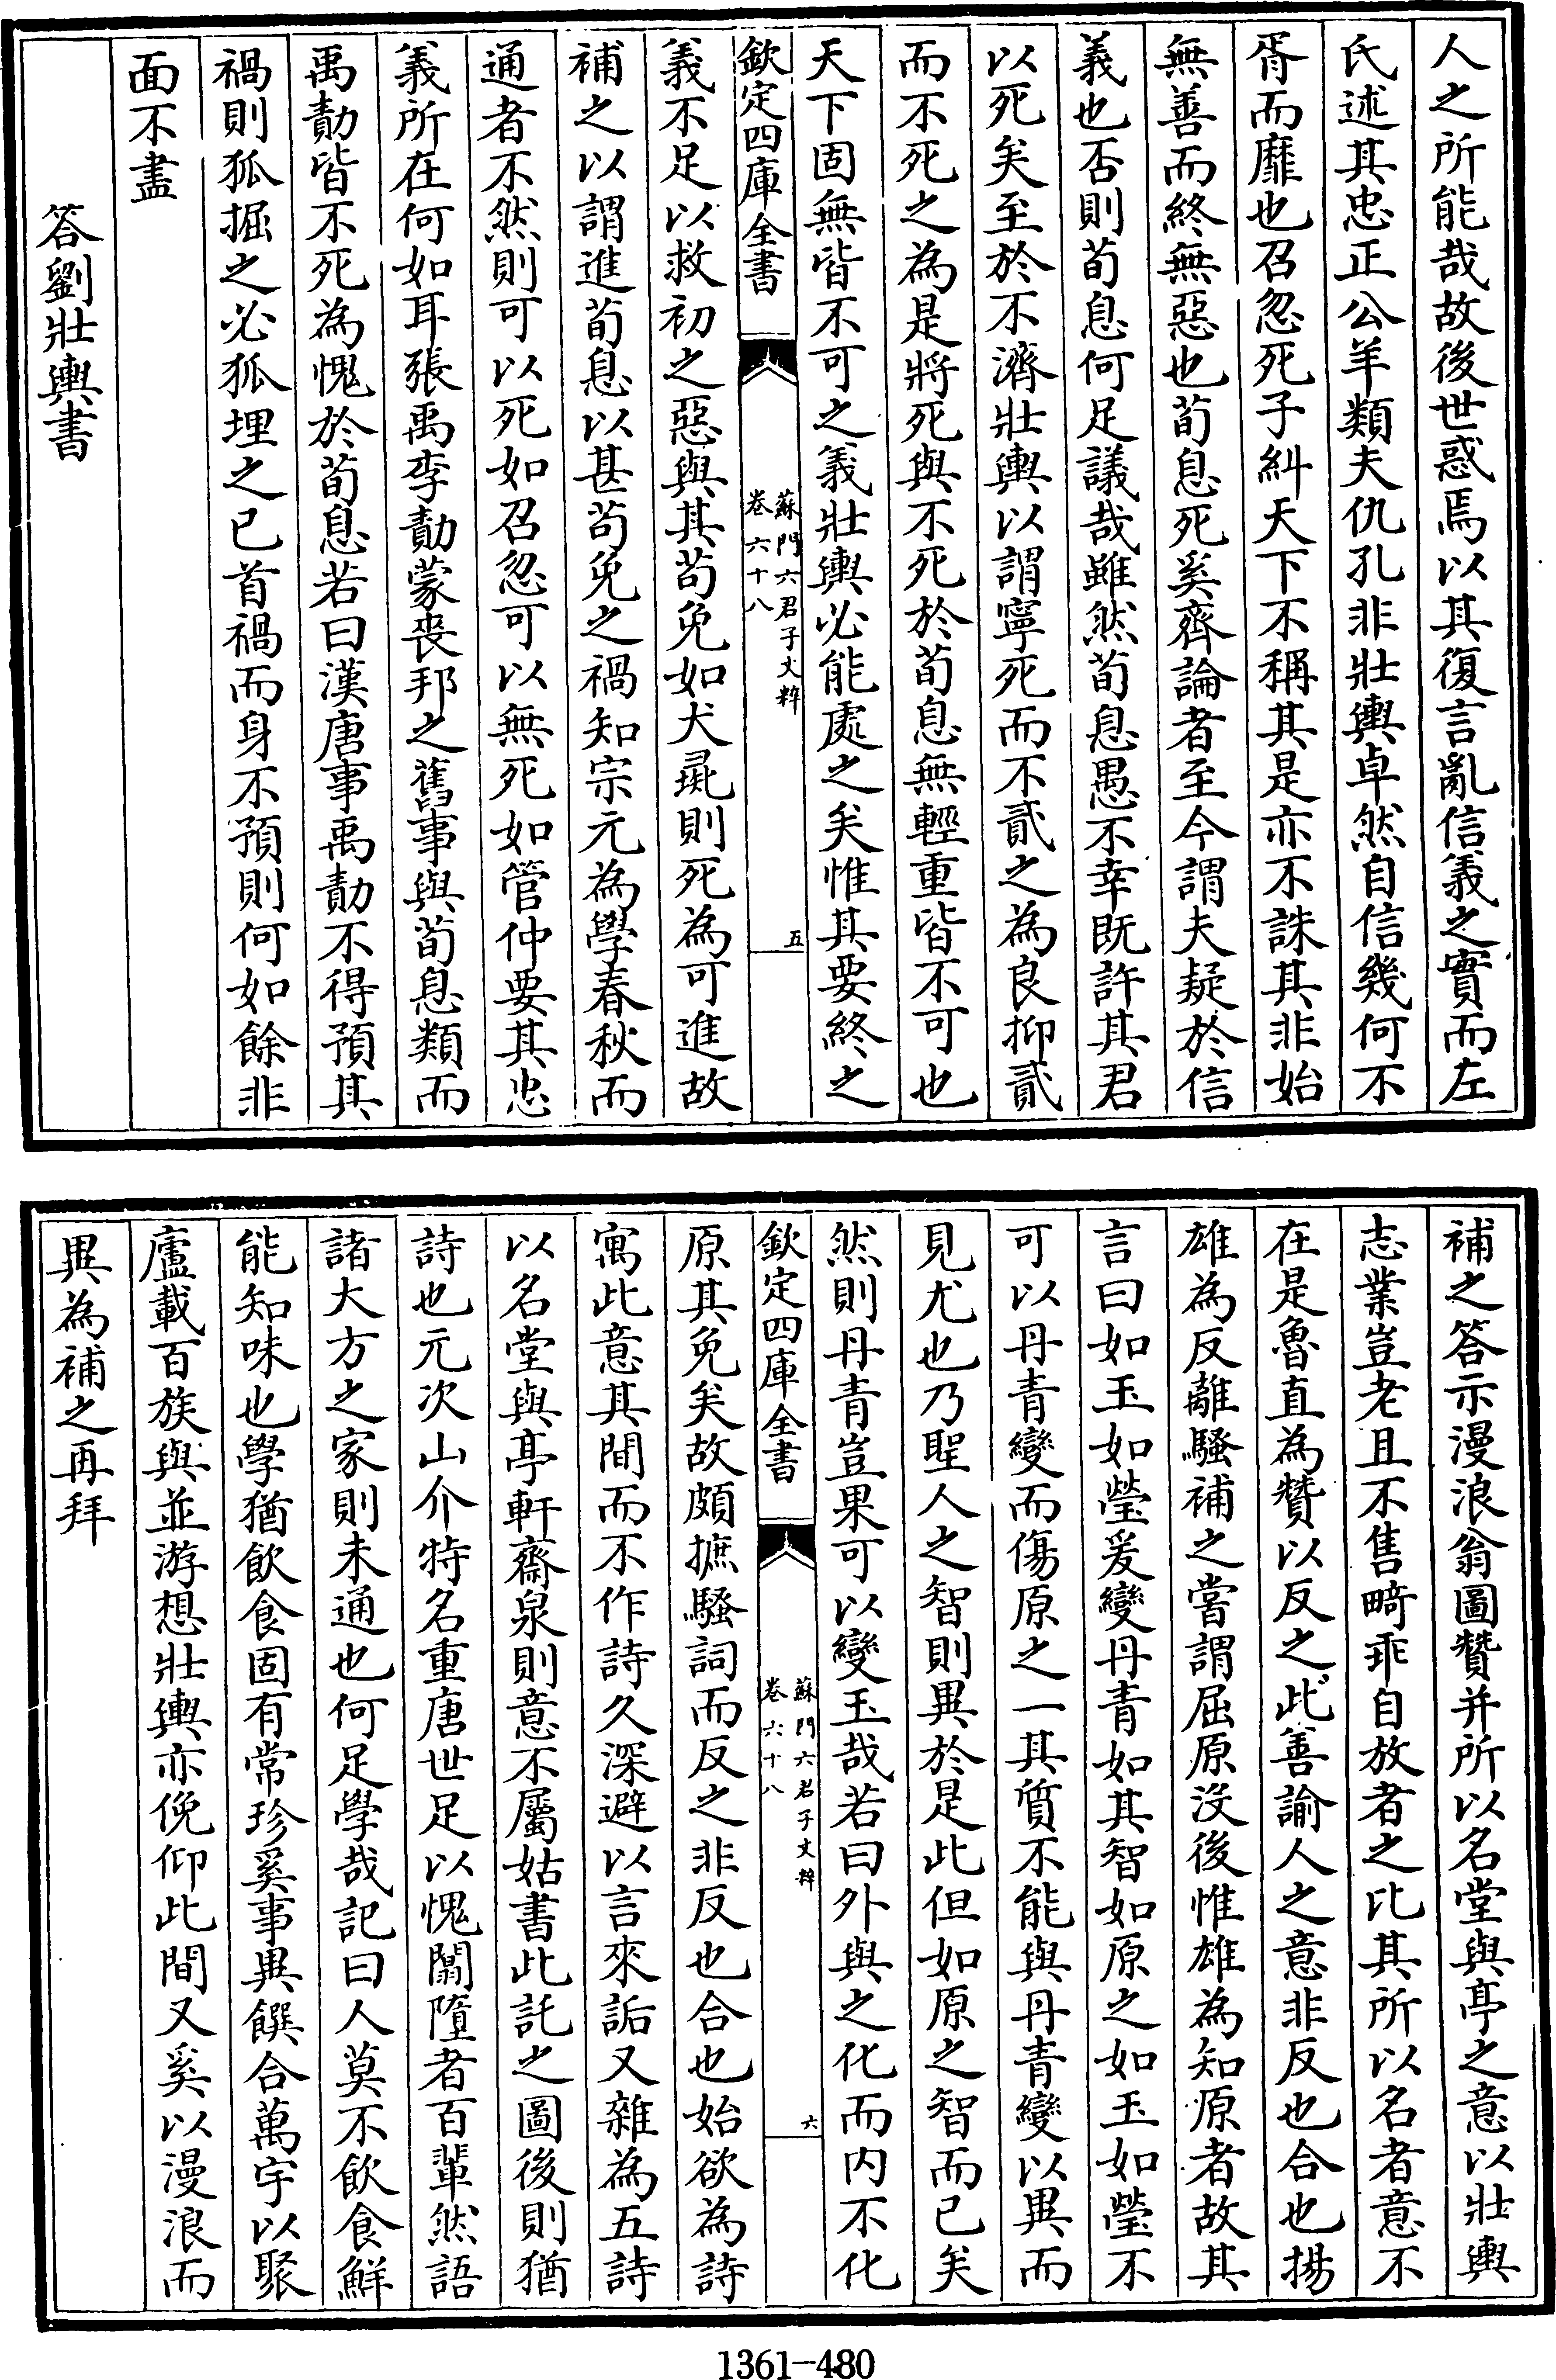 人之所能哉故後世惑焉以其復言亂信義之實而左
氏述其忠正公羊類夫仇孔非壯輿卓然自信幾何不
胥而靡也召忽死子糾天下不稱其是亦不誅其非始
無善而終無惡也荀息死奚齊論者至今謂夫疑於信
義也否則荀息何足議哉雖然荀息愚不幸既許其君
以死矣至於不濟壯輿以謂寧死而不貳之為良抑貳
而不死之為是將死與不死於荀息無輕重皆不可也
天下固無皆不可之義壯輿必能處之矣惟其要終之
欽定四庫全書
蘇門六君子文粹
卷六十八
五
義不足以救初之惡與其苟免如犬彘則死為可進故
補之以謂進荀息以甚苟免之禍知宗元為學春秋而
通者不然則可以死如召忽可以無死如管仲要其忠
義所在何如耳張禹李勣蒙喪邦之舊事與荀息類而
禹勣皆不死為愧於荀息若曰漢唐事禹勣不得預其
禍則狐掘之必狐埋之已首禍而身不預則何如餘非
面不盡
答劉壯輿書
補之答示漫浪翁圖贊并所以名堂與亭之意以壯輿
志業豈老且不售畸乖自放者之比其所以名者意不
在是魯直為贊以反之此善諭人之意非反也合也揚
雄為反離騷補之嘗謂屈原沒後惟雄為知原者故其
言曰如玉如瑩爰變丹青如其智如原之如玉如瑩不
可以丹青變而傷原之一其質不能與丹青變以異而
見尤也乃聖人之智則異於是此但如原之智而已矣
然則丹青豈果可以變玉哉若曰外與之化而内不化
欽定四庫全書
蘇門六君子文粹
卷六十八
六
原其免矣故頗摭騷詞而反之非反也合也始欲為詩
寓此意其間而不作詩久深避以言來詬又雜為五詩
以名堂與亭軒齋泉則意不屬姑書此託之圖後則猶
詩也元次山介特名重唐世足以愧闒墮者百輩然語
諸大方之家則未通也何足學哉記曰人莫不飲食鮮
能知味也學猶飲食固有常珍奚事異饌合萬宇以聚
廬載百族與並游想壯輿亦俛仰此間又奚以漫浪而
異為補之再拜
1361-480